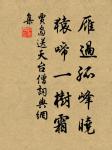 雁過孤峰曉
猿啼一樹霜
賈島送天台僧詞典網
集